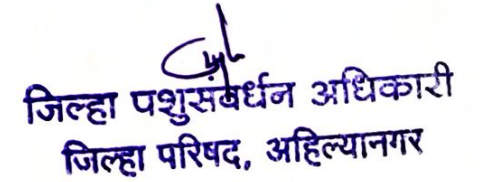 जिल्हा पशुसंवर्धन अधिकारी
जिल्हा परिषद, अहिल्यानगर